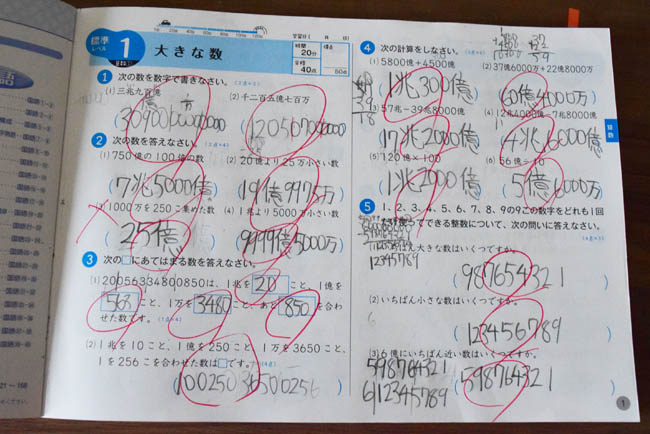 標準レベル
1
大きな数
時間 20分
得点
合格 40点
50点
1 次の数を数字で書きなさい。
(1) 三兆九百億
(2) 千二百五億七百万
(3090000000000)
(120507000000)
2 次の数を答えなさい。
(1) 750億の100倍の数
(2) 20億より25万小さい数
(7兆5000億)
(19億9975万)
(3) 1000万を250こ集めた数
(4) 1兆より5000万小さい数
(25億)
(9999億5000万)
3 次の□にあてはまる数を答えなさい。
(1) 20056334800850は、1兆を 20 こと、1億を
563 こと、1万を 3480 こと、あと 850 を合わ
せた数です。
(2) 1兆を10こと、1億を250こと、1万を3650こと、
1を256こを合わせた数は□です。
4 次の計算をしなさい。
(1) 5800億+4500億
(2) 37億6000万+22億8000万
(1兆300億)
(60億4000万)
(3) 57兆-39兆8000億
(17兆2000億)
(4兆6000億)
(5) 120億×100
(6) 56億÷10
(1兆2000億)
(5億6000万)
算数
5 1、2、3、4、5、6、7、8、9の9この数字をどれも1回
ずつ使ってできる整数について、次の問いに答えなさい。
(987654321)
(2) いちばん小さな数はいくつですか。
(123456789)
(3) 6億にいちばん近い数はいくつですか。
598764321
612345789
(598764321)
1